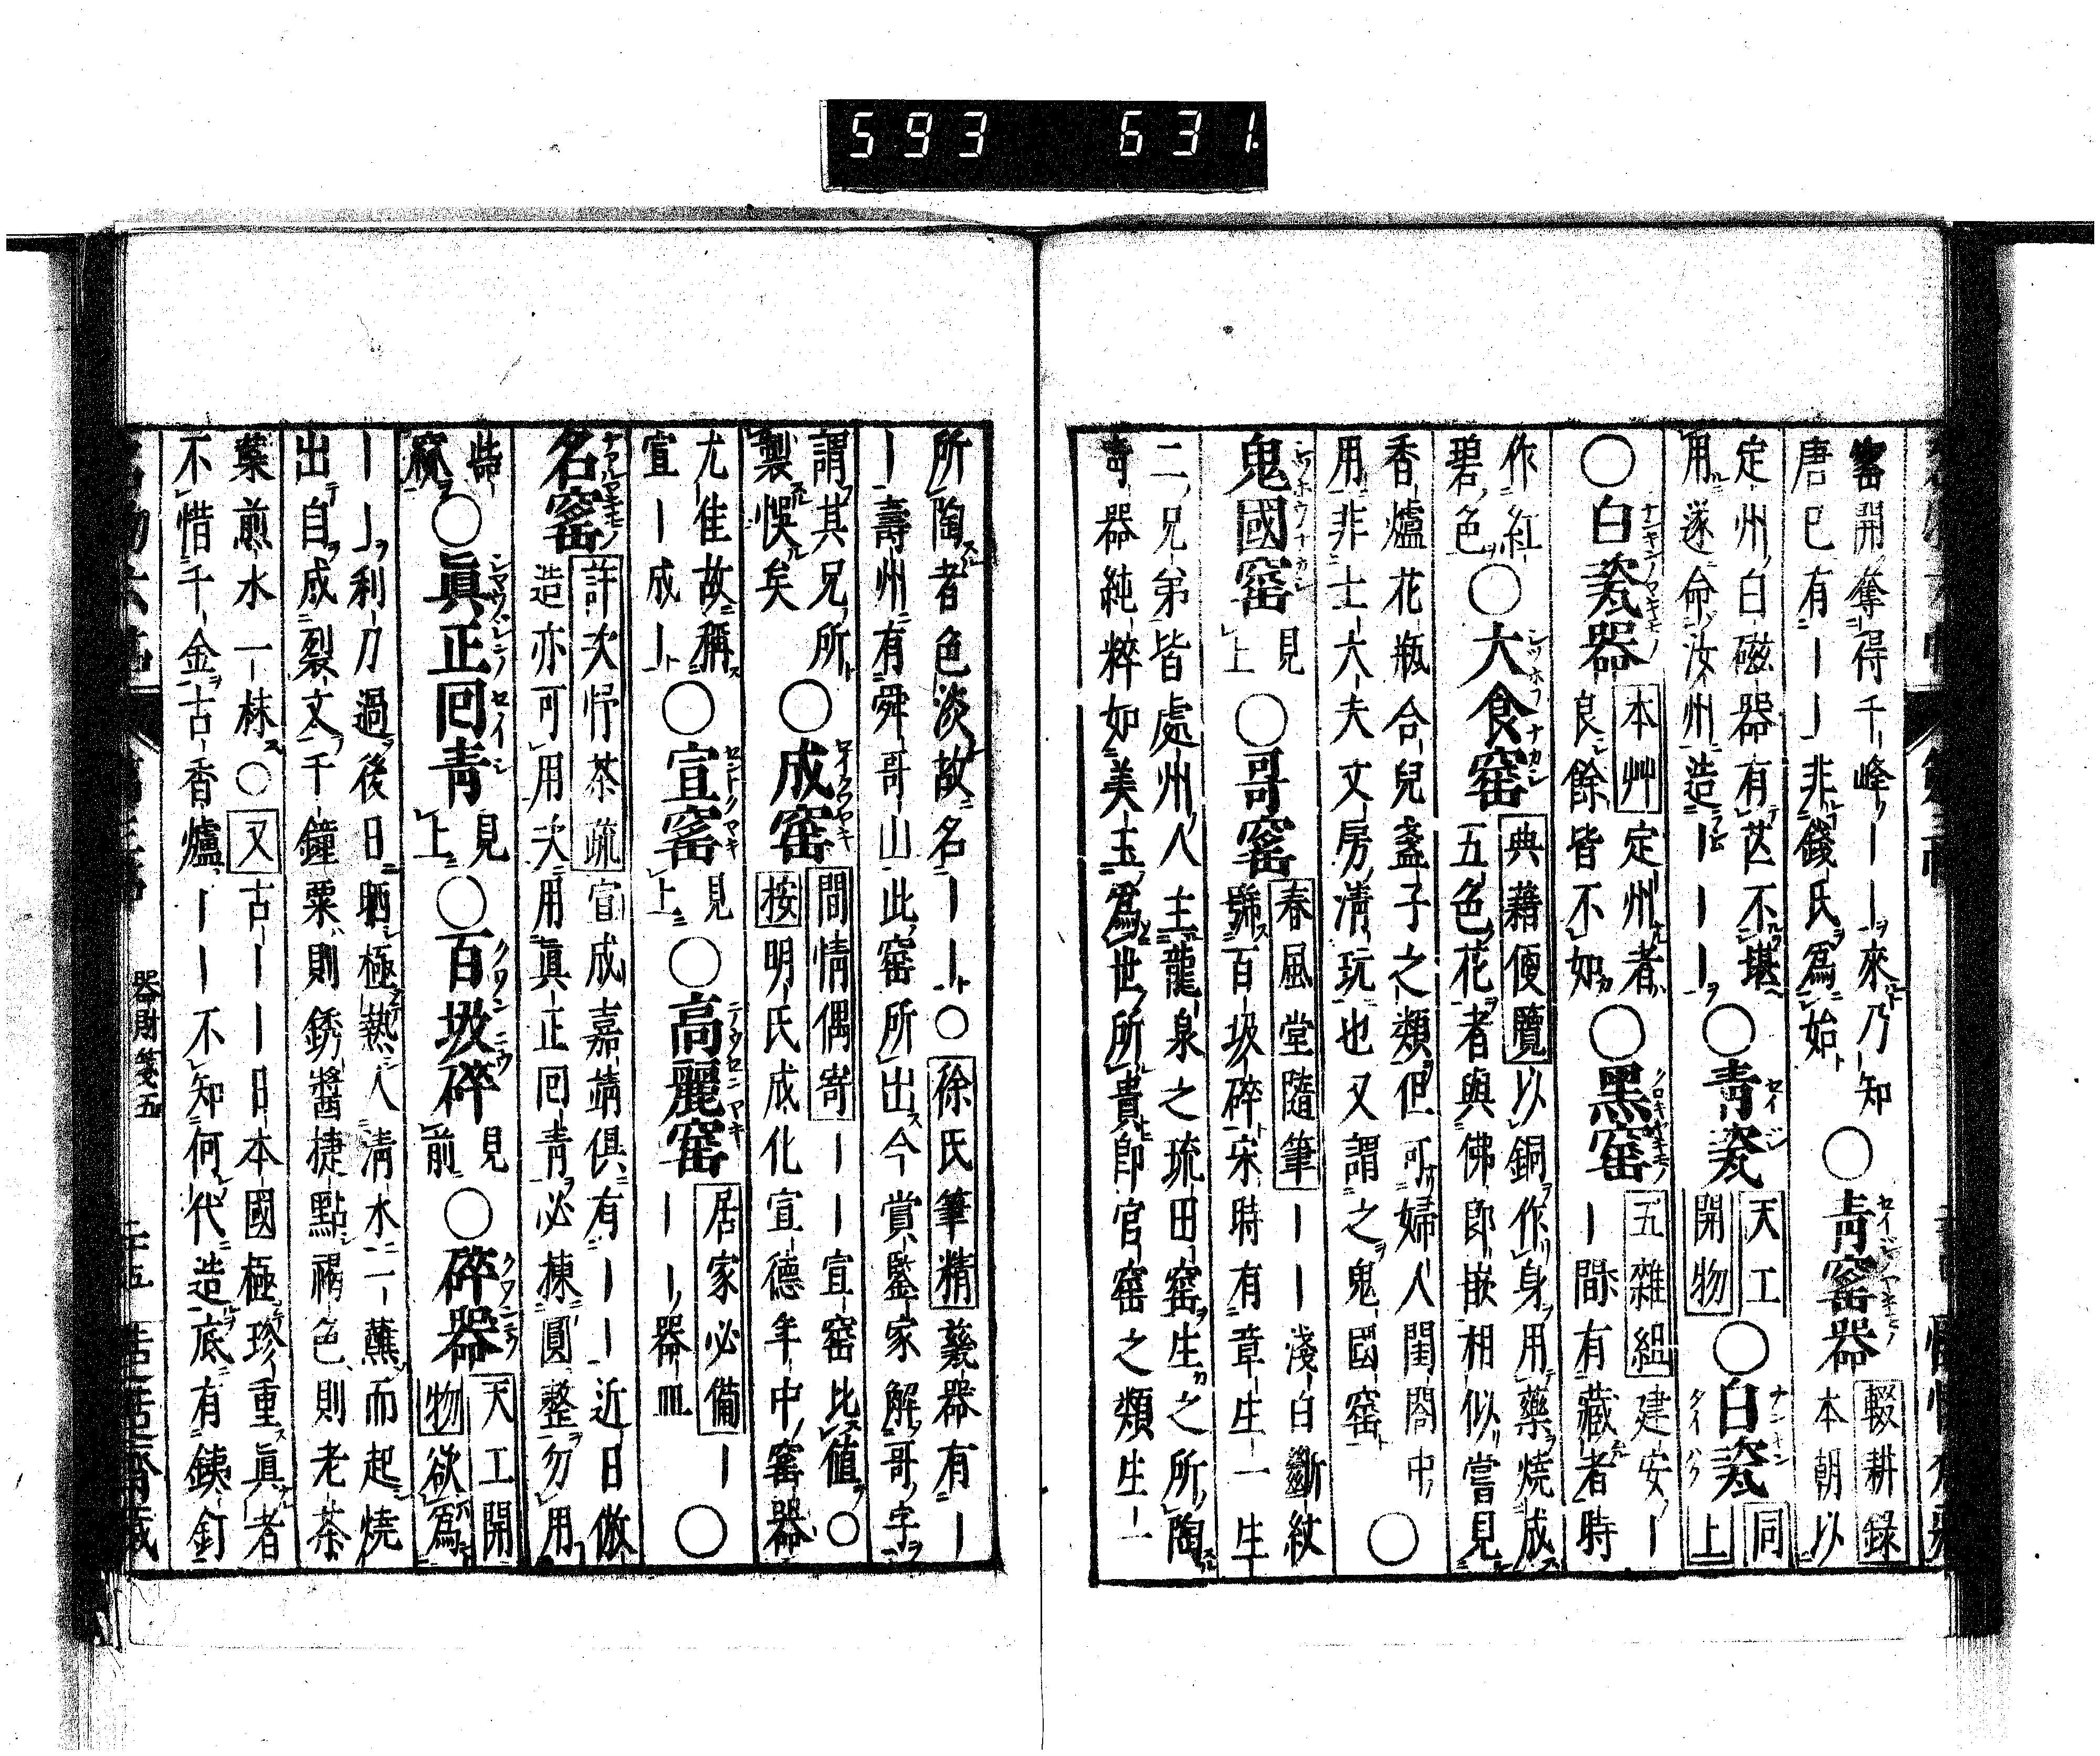 593 631
窰開奪得千峰――來乃知
唐已有――非錢氏爲始
○青窰器
輟耕録
本朝以
定州白磁器有芒不堪
用遂命汝州造―――
○青瓷
天工
開物
○白瓷
同
上
○白瓷器
本艸定州者
良餘皆不如
○黑窰
五雜組建安―
―間有藏者時
作紅
碧色
○大食窑
典藉便覽以銅作身用藥燒成
五色花者與佛郎嵌相似嘗見
香爐花瓶合兒盞子之類但可婦人閨閤中
用非士大夫文房淸玩也又謂之鬼國窑
○
鬼國窑
見
上
○哥窰
春風堂隨筆――淺白斷紋
號百圾碎宋時有章生一生
二兄弟皆處州人主龍泉之琉田窑生之所陶
奇器純粹如美玉爲世所貴即官窑之類生一
所陶者色淡故名――○徐氏筆精義器有―
―壽州有舜哥山此窑所出今賞鑒家解哥字
謂其兄所
製悞矣
○成窑
間情偶寄――宣窑比値○
按明氏成化宣德年中窰器
尤佳故稱
宣―成―
○宣窰
見
上
○高麗窑
居家必備―
――器皿
○
名窰
許次忬茶疏宣成嘉靖俱有――近日倣
造亦可用次用眞正回青必揀圓整勿用
啙
窳
○眞正回青
見
上
○百圾碎
見
前
○碎器
天工開
物欲爲
――利刀過後日晒極熱入淸水一蘸而起燒
出自成裂文千鐘粟則銹醬捷點褐色則老茶
葉煎水一抹○又古―――日本國極珍重眞者
不惜千金古香爐―――不知何代造底有鐵釘
器財箋五